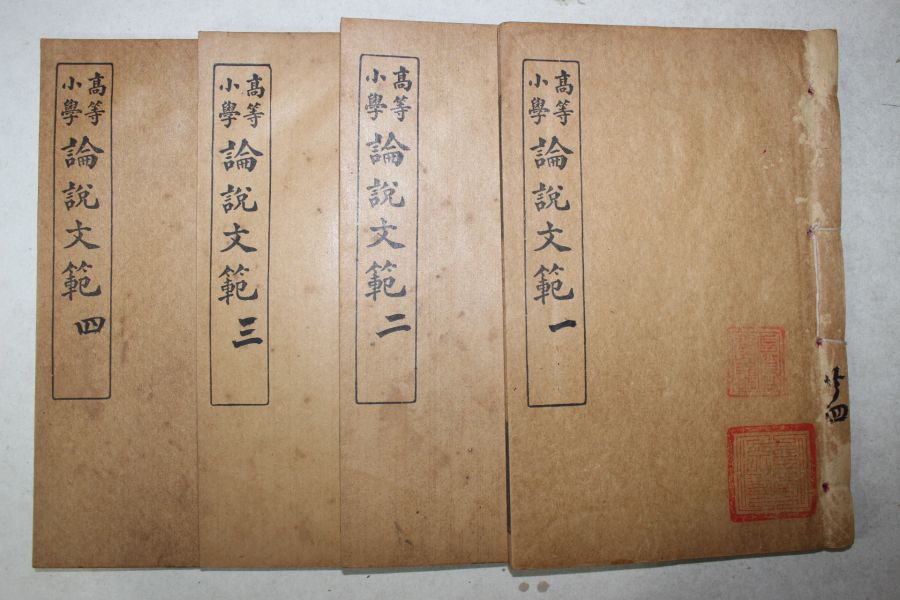 高等小學論說文範 一
高等小學論說文範 二
高等小學論說文範 三
高等小學論說文範 四